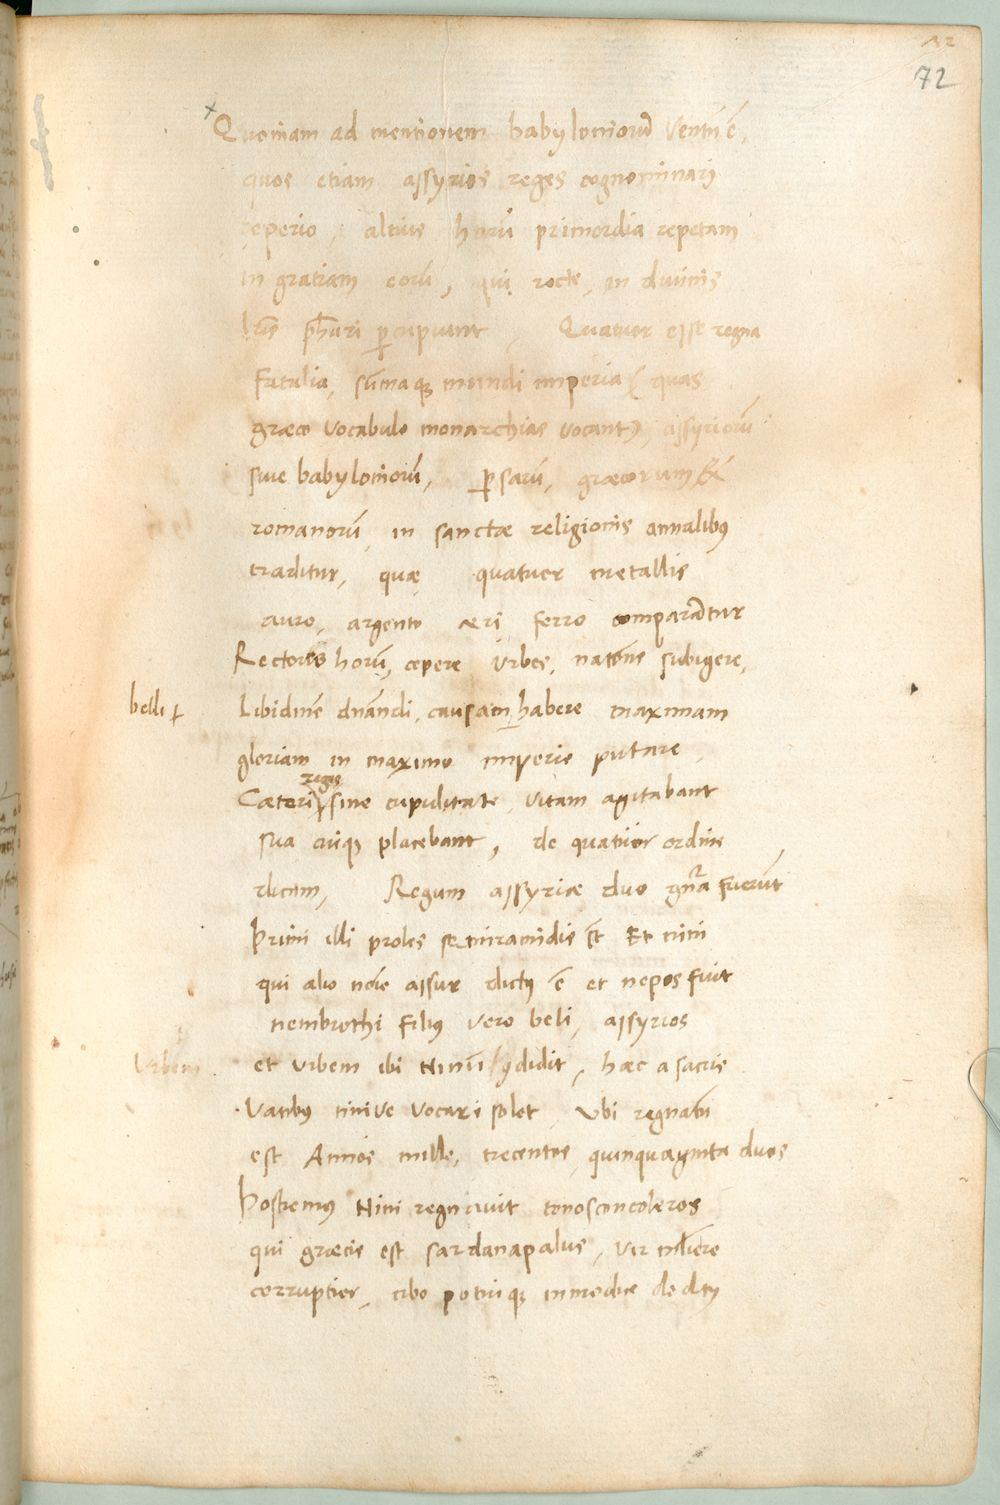 72
Quoniam ad mentionem babyloniorū Ventū ē,
quos etiam assyrios reges cognominari
reperio, altius horū primordia repetam
in gratiam eorū, qui recte, in divinis
lris ꝑcipiunt, Quatuor esse regna
fatalia, sūmaqꝫ mundi imperia (quas
græco vocabulo monarchias vocant) assyriorū
sive babyloniorū, ꝑsarū, græcorum &
romanorū, in sanctæ religionis annalibꝰ
traditur, quæ quatuor metallis
auro, argento æri ferro comparātur
Rectores horū, cepere Urbes, natōnes subigere,
belli Libidinē dnāndi, causam habere maximam
gloriam in maximo imperio putare,
reges
Cæteri sine cupiditate, vitam agitabant
sua cuiqꝫ placebant, de quatuor ordine
dicam, Regum assyriæ duo gn̄a fuerūt
Primi illi proles semiramidis st̄ Et nini
qui alio noīe assur dictꝰ ē et nepos fuit
nembrothi filiꝰ vero beli, assyrios
Urbem et urbem ibi Ninū ꝯdidit, hæc a sacris
Vatibꝰ ninive vocari solet, Ubi regnatū
est Annos mille, trecentos, quinquaginta duos
Postremꝰ Nini regnavit tonosconcoleros
qui græcis est sardanapalus, vir muliere
corruptior, cibo potuiqꝫ inmodice deditꝰ